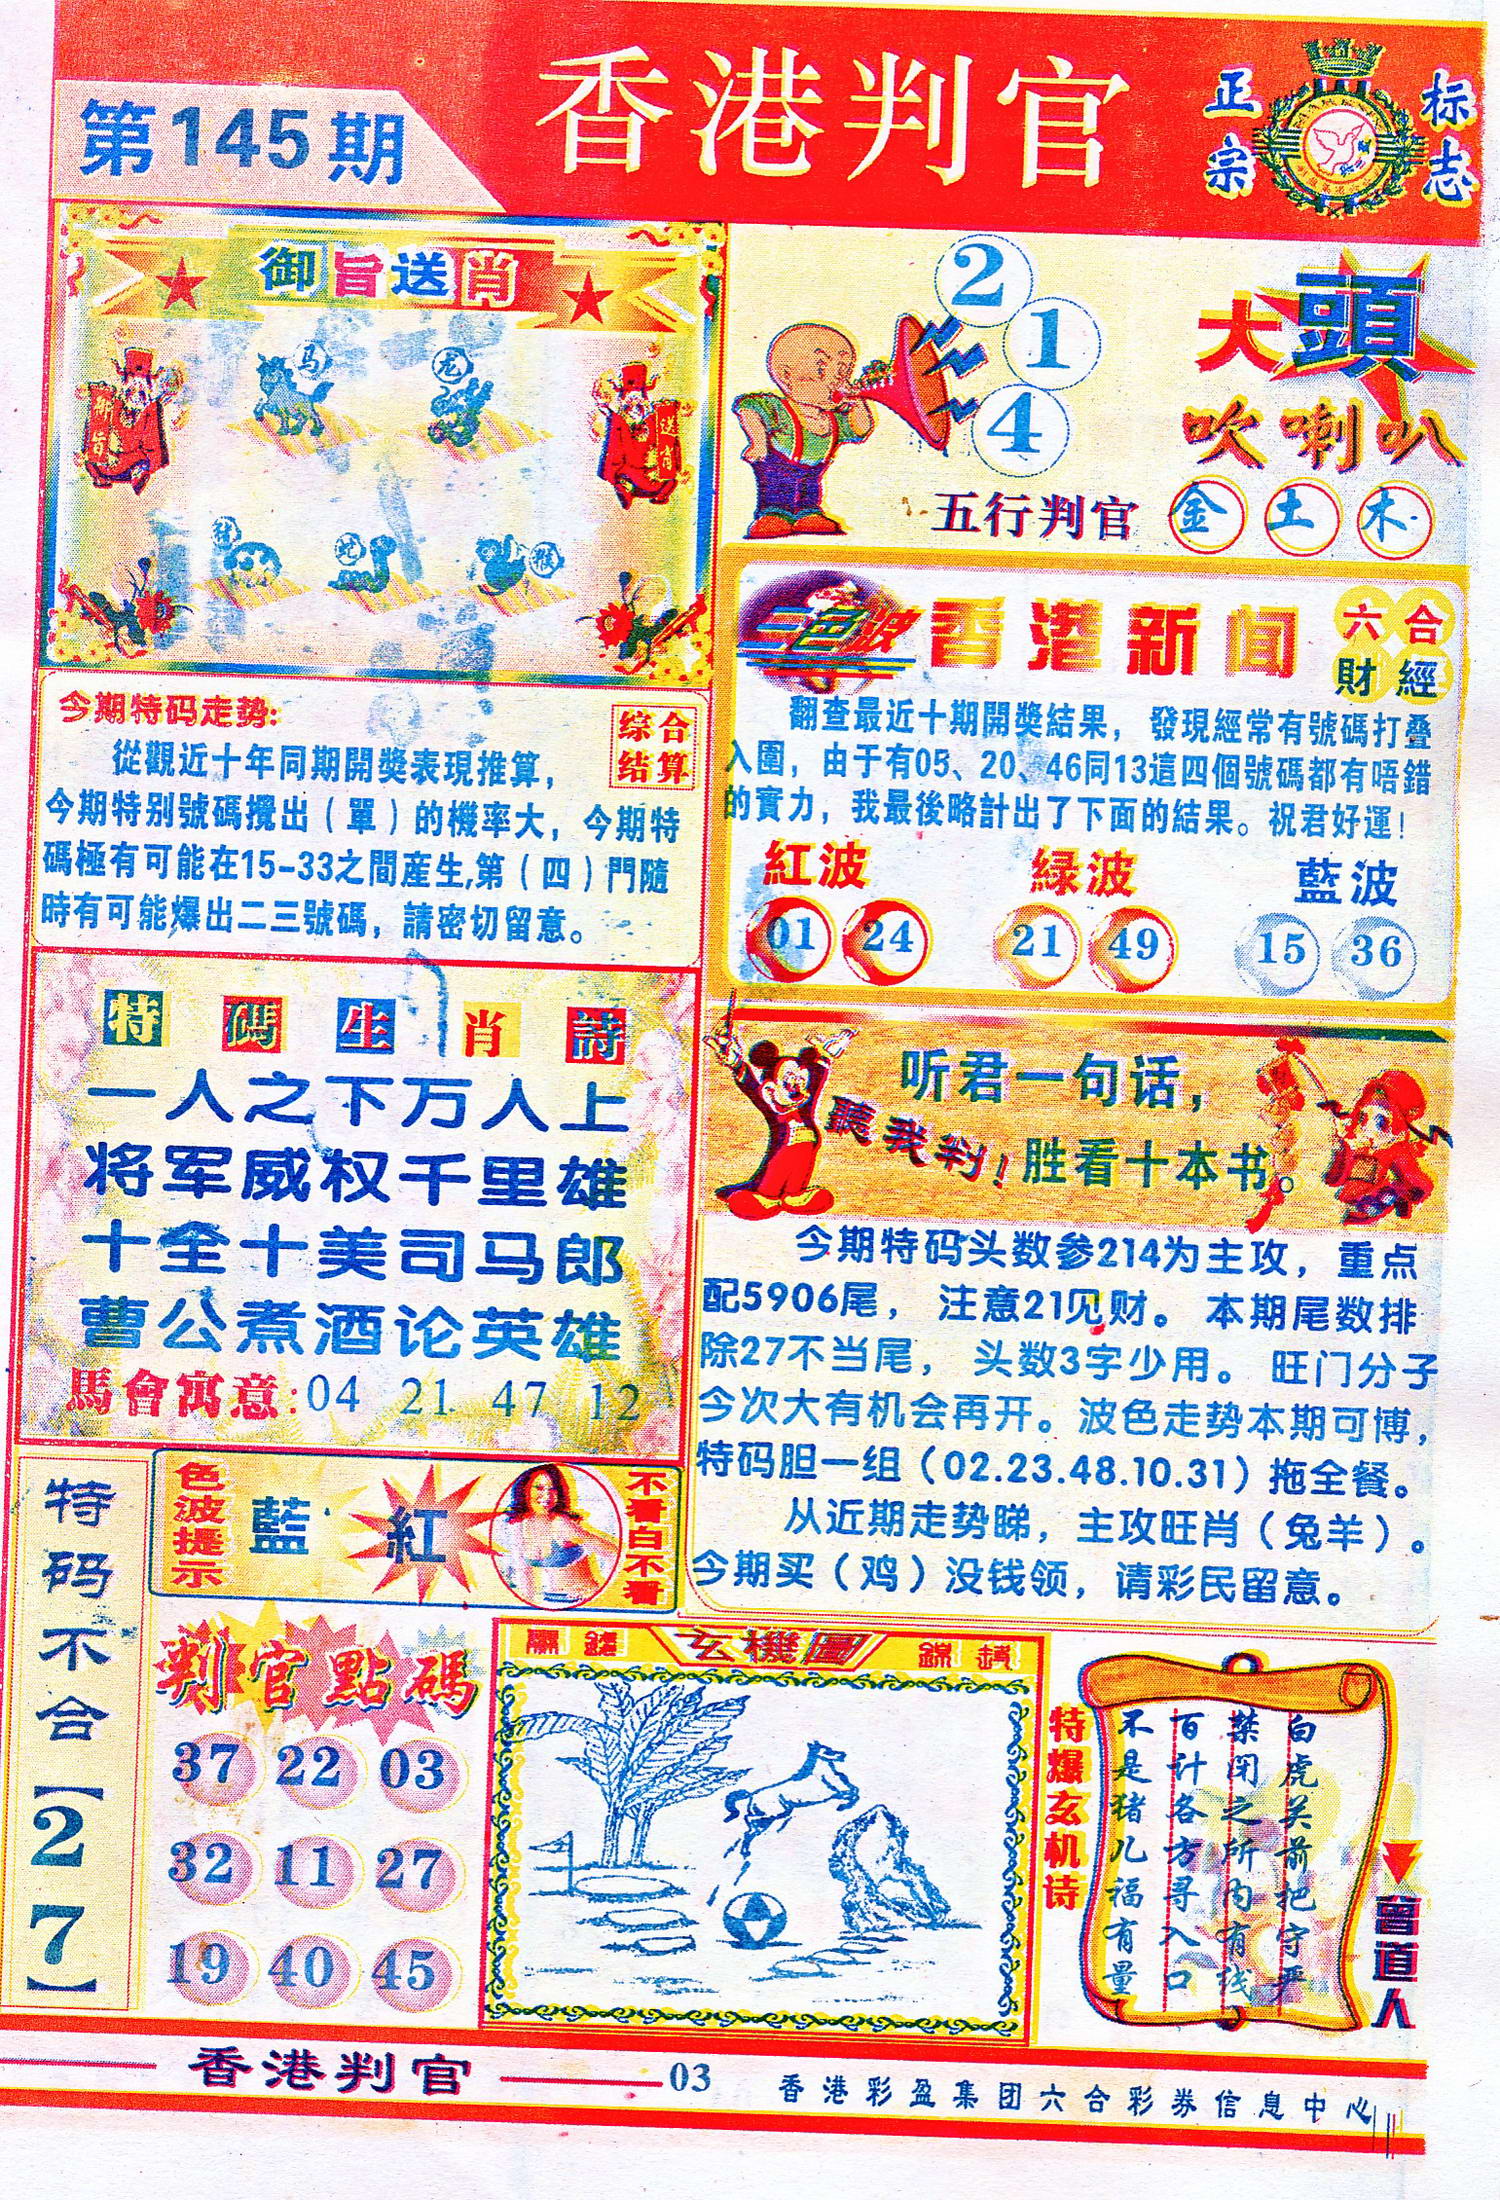 香港判官
第145期
正宗
标志
御旨送肖
马
龙
御旨
送肖
猪
蛇
猴
2
1
4
大頭
吹喇叭
五行判官 金 土 木
今期特码走势:
综合
结算
從觀近十年同期開獎表現推算,
今期特别號碼攪出（單）的機率大, 今期特
碼極有可能在15-33之間産生,第（四）門隨
時有可能爆出二三號碼, 請密切留意。
三色波
香港新闻
六合
財經
翻查最近十期開獎結果, 發現經常有號碼打叠
入圍, 由于有05、20、46同13這四個號碼都有唔錯
的實力, 我最後略計出了下面的結果。祝君好運!
紅波 緑波 藍波
01 24 21 49 15 36
特碼生肖詩
一人之下万人上
将军威权千里雄
十全十美司马郎
曹公煮酒论英雄
馬會寓意:04 21 47 12
听君一句话,
聽我判!
胜看十本书。
今期特码头数参214为主攻, 重点
配5906尾, 注意21见财。本期尾数排
除27不当尾, 头数3字少用。旺门分子
今次大有机会再开。波色走势本期可博,
特码胆一组（02.23.48.10.31）拖全餐。
从近期走势睇, 主攻旺肖（兔羊）。
今期买（鸡）没钱领, 请彩民留意。
特码不合【27】
色波提示
藍 紅
不看白不看
判官點碼
37 22 03
32 11 27
19 40 45
玄機圖
特爆玄机诗
白虎关前把守严
禁闭之所内有线
百计各方寻入口
不是猪儿福有量
曾道人
香港判官
03
香港彩盈集团六合彩券信息中心